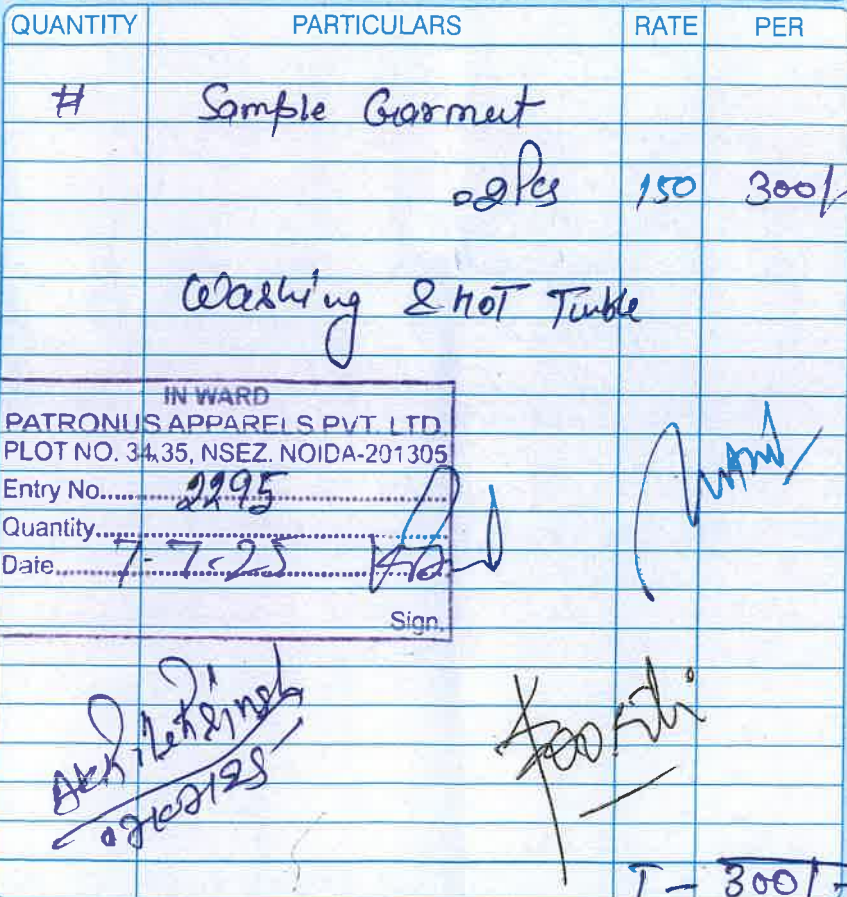 QUANTITY PARTICULARS RATE PER
# Sample Garment
02Pcs 150 300/
Washing & HOT Tumble
IN WARD
PATRONUS APPARELS PVT. LTD.
PLOT NO. 34,35, NSEZ. NOIDA-201305
Entry No..... 2295
Quantity
Date.... 7-7-25
Sign.
T - 300/-